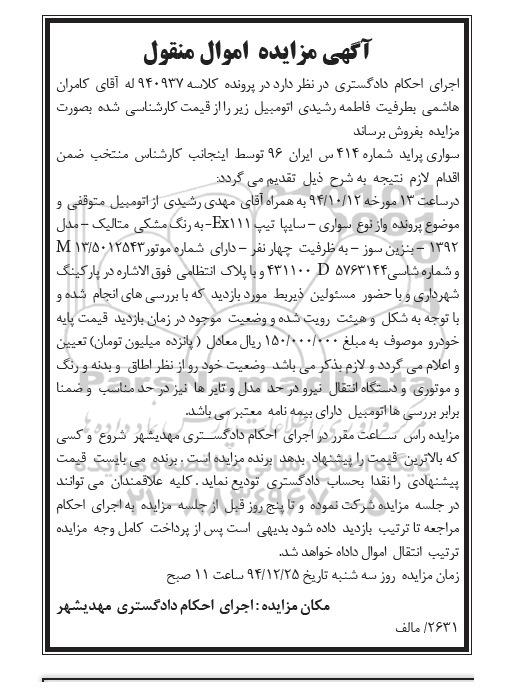 آگهی مزایده اموال منقول
اجرای احکام دادگستری در نظر دارد در پرونده کلاسه ۹۴۰۹۳۷ له آقای کامران
هاشمی بطرفیت فاطمه رشیدی اتومبیل زیر را از قیمت کارشناسی شده بصورت
مزایده بفروش برساند
سواری پراید شماره ۴۱۴ س ایران ۹۶ توسط اینجانب کارشناس منتخب ضمن
اقدام لازم نتیجه به شرح ذیل تقدیم می گردد:
درساعت ۱۳ مورخه ۹۴/۱۰/۱۲ به همراه آقای مهدی رشیدی از اتومبیل متوقفی و
موضوع پرونده واز نوع سواری – سایپا تیپ Ex۱۱۱- به رنگ مشکی متالیک – مدل
۱۳۹۲ – بنزین سوز – به ظرفیت چهار نفر – دارای شماره موتور M ۱۳/۵۰۱۲۵۴۳
و شماره شاسی ۴۳۱۱۰۰ D ۵۷۶۳۱۴۴ و با پلاک انتظامی فوق الاشاره در پارکینگ
شهرداری و با حضور مسئولین ذیربط مورد بازدید که با بررسی های انجام شده و
با توجه به شکل و هیئت رویت شده و وضعیت موجود در زمان بازدید قیمت پایه
خودرو موصوف به مبلغ ۱۵۰/۰۰۰/۰۰۰ ریال معادل ( پانزده میلیون تومان) تعیین
و اعلام می گردد و لازم بذکر می باشد وضعیت خود رو از نظر اطاق و بدنه و رنگ
و موتوری و دستگاه انتقال نیرو در حد مدل و تایر ها نیز در حد مناسب و ضمنا
برابر بررسی ها اتومبیل دارای بیمه نامه معتبر می باشد.
مزایده راس ساعت مقرر در اجرای احکام دادگستری مهدیشهر شروع و کسی
که بالاترین قیمت را پیشنهاد بدهد برنده مزایده است . برنده می بایست قیمت
پیشنهادی را نقدا بحساب دادگستری تودیع نماید . کلیه علاقمندان می توانند
در جلسه مزایده شرکت نموده و تا پنج روز قبل از جلسه مزایده به اجرای احکام
مراجعه تا ترتیب بازدید داده شود بدیهی است پس از پرداخت کامل وجه مزایده
ترتیب انتقال اموال داداه خواهد شد.
زمان مزایده روز سه شنبه تاریخ ۹۴/۱۲/۲۵ ساعت ۱۱ صبح
مکان مزایده : اجرای احکام دادگستری مهدیشهر
۲۶۳۱/ مالف
ParsNamadData
۰۲۱-۸۸۳۴۹۶۷۰-۵